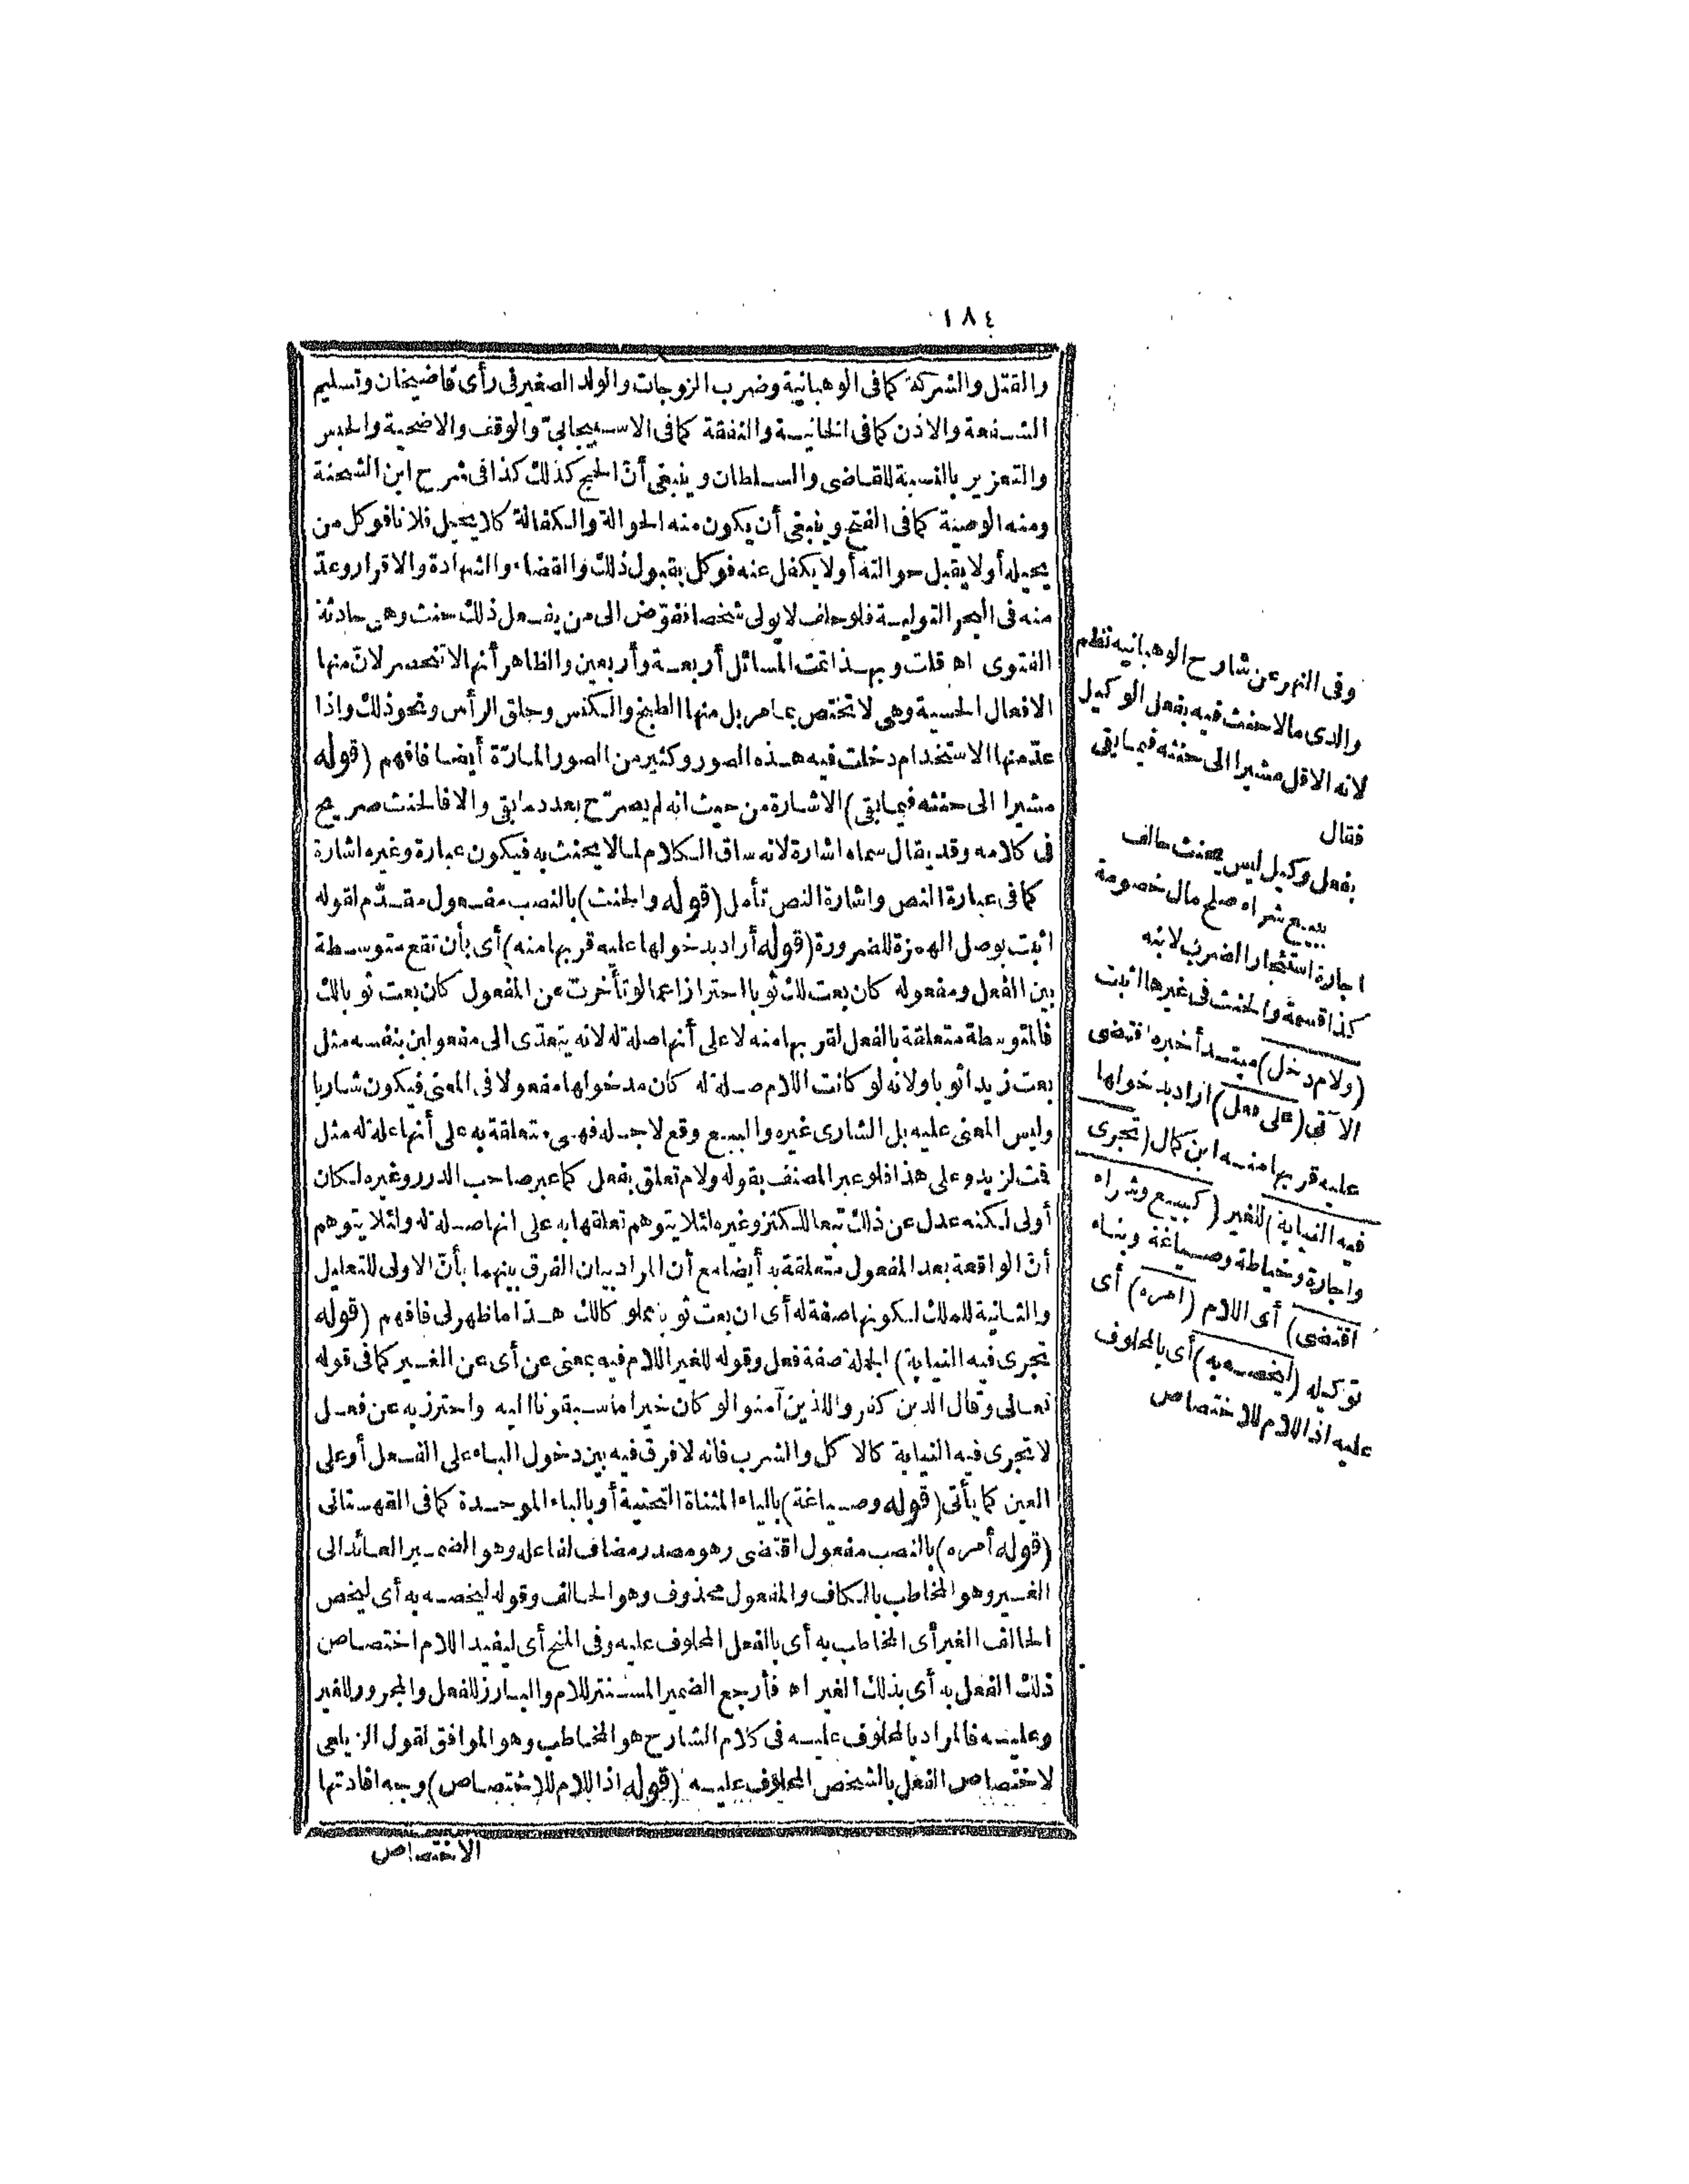 ١٨٤
والقتل والشركة كما في الوهبانية وضرب الزوجات والولد الصغير في رأى قاضيخان وتسليم
الشفعة والاذن كما في الخانية والنفقة كما في الاسبيجابىّ والوقف والاضحية والحبس
والتعزير بالنسبة للقاضى والسلطان وينبغى أنّ الحج كذلك كذا فى شرح ابن الشحنة
ومنه الوصية كما فى الفتح وينبغى أن يكون منه الحوالة والكفالة كلا يحيل فلانا فوكل من
يحيله أو لا يقبل حوالته أو لا يكفل عنه فوكل بقبول ذلك والقضاء والشهادة والاقرار وعدّ
منه فى البحر التولية فلو حلف لا يولى شخصا ففوّض الى من يفعل ذلك حنث وهى حادثة
الفتوى اه قلت وبهذا تمت المسائل أربعة وأربعين والظاهر أنها لا تنحصر لانّ منها
الافعال الحسية وهى لا تختص بما مر بل منها الطبخ والكنس وحلق الرأس ونحو ذلك واذا
عدّ منها الاستخدام دخلت فيه هذه الصور وكثير من الصور المارّة أيضا فافهم (قوله
مشيرا الى حنثه فيما بقى) الاشارة من حيث انه لم يصرّح بعدد ما بقى والا فالحنث صريح
فى كلامه وقد يقال سماه اشارة لانه ساق الكلام لما لا يحنث به فيكون عبارة وغيره اشارة
كما فى عبارة النص واشارة النص تأمل (قوله والحنث) بالنصب مفعول مقدّم لقوله
اثبت بوصل الهمزة للضرورة (قوله أراد بدخولها عليه قربها منه) أى بأن تقع متوسطة
بين الفعل ومفعوله كان بعت لك ثوبا احترازا عما لو تأخرت عن المفعول كان بعت ثوبا لك
فالمتوسطة متعلقة بالفعل لقربها منه لا على أنها صلة له لانه يتعدّى الى مفعولين بنفسه مثل
بعت زيدا ثوبا ولانه لو كانت اللام صلة له كان مدخولها مفعولا فى المعنى فيكون شاريا
وليس المعنى عليه بل الشارى غيره والبيع وقع لاجله فهى متعلقة به على أنها علة له مثل
قمت لزيد وعلى هذا فلو عبر المصنف بقوله ولام تعلق بفعل كما عبر صاحب الدرر وغيره لكان
أولى لكنه عدل عن ذلك تبعا للكنز وغيره لئلا يتوهم تعلقها به على انها صلة له ولئلا يتوهم
أنّ الواقعة بعد المفعول متعلقة به أيضا مع أن المراد بيان الفرق بينهما بأنّ الاولى للتعليل
والثانية للملك لكونها صفة له أى ان بعت ثوبا مملوكا لك هذا ما ظهر لى فافهم (قوله
تجرى فيه النيابة) الجملة صفة فعل وقوله للغير اللام فيه بمعنى عن أى عن الغير كما فى قوله
تعالى وقال الدين كفروا للذين آمنوا لو كان خيرا ما سبقونا اليه واحترز به عن فعل
لا تجرى فيه النيابة كالاكل والشرب فانه لا فرق فيه بين دخول الباء على الفعل أو على
العين كما يأتى (قوله وصياغة) بالياء المثناة التحتية أو بالباء الموحدة كما فى القهستانى
(قوله أمره) بالنصب مفعول اقتضى وهو مصدر مضاف لفاعله وهو الضمير العائد الى
الغير وهو المخاطب بالكاف والمفعول محذوف وهو الحالف وقوله ليخصه به أى ليخص
الحالف الغير أى المخاطب به أى بالفعل المحلوف عليه وفى المنح أى ليفيد اللام اختصاص
ذلك الفعل به أى بذلك الغير اه فأرجع الضمير المستتر للام والبارز للفعل والمجرور للغير
وعليه فالمراد بالمحلوف عليه فى كلام الشارح هو المخاطب وهو الموافق لقول الزيلعى
لاختصاص الفعل بالشخص المحلوف عليه (قوله اذ اللام للاختصاص) وجه افادتها
الاختصاص
وفى النهر عن شارح الوهبانيه نظم
والدى مالا حنث فيه بفعل الوكيل
لانه الاقل مشيرا الى حنثه فيما بقى
فقال
بفعل وكيل ليس يحنث حالف
ببيع شراء صلح مال خصومة
اجارة استئجار الضرب لابنه
كذا قسمة والحنث فى غيرها اثبت
(ولام دخل) مبتدأ خبره اقتضى
الآتى (على فعل) اراد بدخولها
عليه قربها منه ابن كمال (تجرى
فيه النيابة) للغير (كبيع وشراء
واجارة وخياطة وصياغة وبناء
اقتضى) أى اللام (امره) أى
توكيله (ليخصه به) أى بالمحلوف
عليه اذ اللام للاختصاص